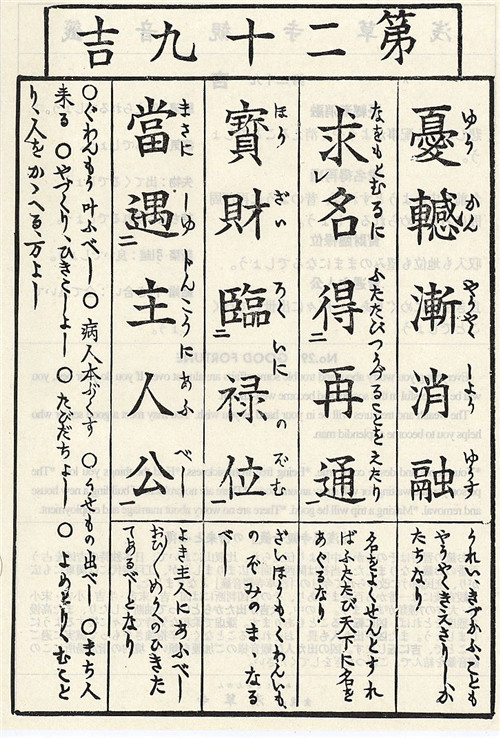 第二十九吉
憂轗漸消融
ゆう かん やうやく しよう ゆうす
たちなり
求レ名得二再通一
なをもとむ に ふたたびつうづることをえたり
名をよくせんとすれ
ばふたたび天下に名を
あぐるなり
寶財臨二禄位一
ほう ざい ろくいに のぞむ
のぞみのまゝなる
べし
當遇二主人公一
まさに しゆじんこうに あふべし
よき主人にあふべし
てあるべしとなり
○ぐわんもう叶ふべし ○病人本ぶくす ○うせもの出べし ○まち人
来る ○やづくり、ひきこしよし ○たびだちよ
し ○よめどり、むことり、人をかゝへる、万よし